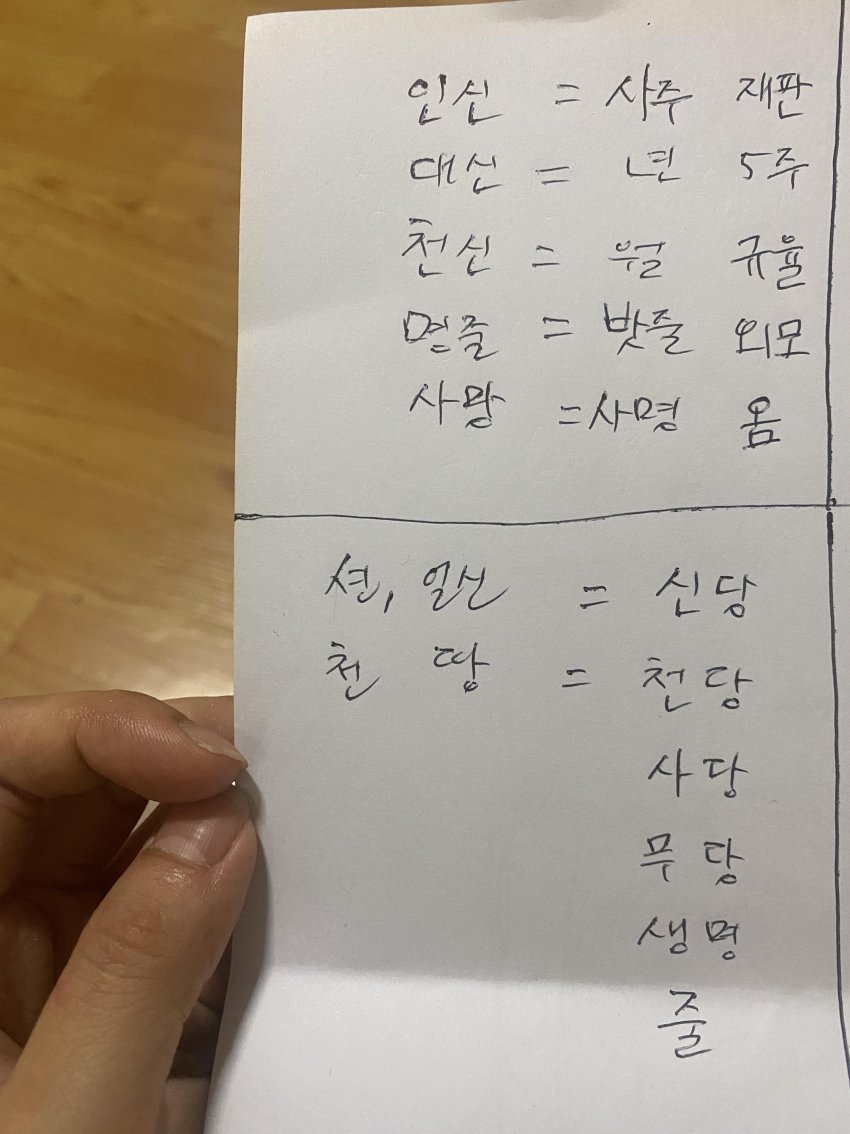 인신 = 사주 재판
대신 = 년 5주
천신 = 월 규율
명줄 = 밧줄 외모
사망 = 사명 옴
션, 일신 = 신당
천 땅 = 천당
사당
무당
생명
줄